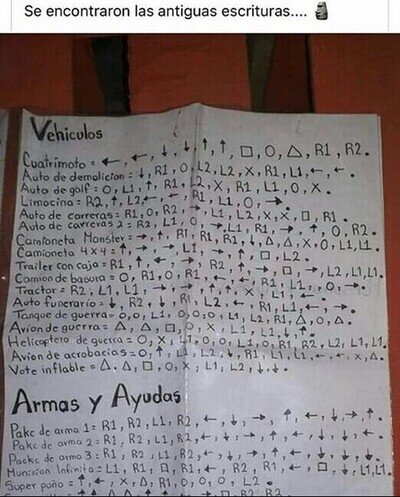 Se encontraron las antiguas escrituras.... 🗿
Vehiculos
Cuatrimoto = ←, ←, ↓, ↓, ↑, ↑, □, O, △, R1, R2.
Auto de demolicion = ↓, R1, O, L2, L2, X, R1, L1, ←, ←.
Auto de golf = O, L1, ↑, R1, L2, X, R1, L1, O, X.
Limocina = R2, ↑, L2, ←, ←, R1, L1, O, →.
Auto de carreras = R1, O, R2, →, L1, L2, X, X, □, R1.
Auto de carreras 2 = R2, L1, O, →, L1, R1, →, ↑, O, R2.
Camioneta Monster = →, ↑, R1, R1, R1, ↓, △, △, X, O, L1, L1.
Camioneta 4x4 = ↑, →, →, L1, →, ↑, □, L2.
Trailer con caja = R1, ↑, ←, →, R2, ↑, →, □, →, L2, L1, L1.
Camion de basura = O, R1, O, R1, ←, ←, R1, L1, O, →.
Tractor = R2, L1, L1, →, →, ↑, ↑, X, L1, ←.
Auto funerario = ↓, R2, ↓, R1, L2, ←, R1, L1, ←, →.
Tanque de guerra = O, O, L1, O, O, O, L1, L2, R1, △, O, △.
Avion de guerra = △, △, □, O, X, L1, L1, ↓, ↑.
Helicoptero de guerra = O, X, L1, O, O, L1, O, R1, R2, L2, L1, L1.
Avion de acrobacias = O, ↑, L1, L2, ↓, R1, L1, L1, ←, ←, X, △.
Vote inflable = △, △, □, O, X, L1, L2, ↓, ↓.
Armas y Ayudas
Pake de arma 1 = R1, R2, L1, R2, ←, ↓, →, ↑, ←, ↓, →, ↑.
Pake de arma 2 = R1, R2, L1, R2, ←, ↓, →, ↑, ←, ↓, ↓, ←.
Packe de arma 3 = R1, R2, L1, R2, ←, ↓, →, ↑, ←, ↓, ↓, ↓.
Municion Infinita = L1, R1, □, R1, ←, R2, R1, ←, □, ↓, L1, L1.
Super puño = ↑, ←, X, △, R1, O, O, O, L2.